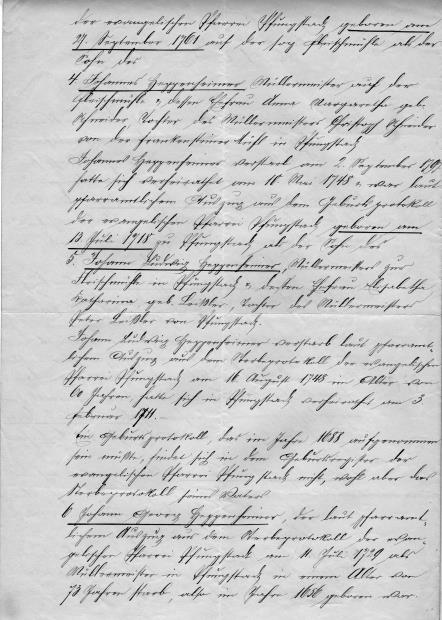 der evangelischen Pfarrei Pfungstadt geboren am
27. September 1761 auf der sog. Fleischmühle als der
Sohn des
4. Johannes Heppenheimer Müllermeister auf der
Fleischmühle u. dessen Ehefrau Anna Margaretha geb.
Schneider, Tochter des Müllermeisters Christoph Schneider
von der Frankensteiner Mühl in Pfungstadt
Johannes Heppenheimer verstarb am 2. September
hatte sich verheirathet am 18 Mai 1748 u. war laut
pfarramtlichem Auszug aus dem Geburtsprotokoll
der evangelischen Pfarrei Pfungstadt geboren am
13 Juli 1718 zu Pfungstadt als der Sohn des
5. Johann Ludwig Heppenheimer, Müllermeisters zur
Fleischmühle in Pfungstadt u. dessen Ehefrau Elisabetha
Katharina geb. Tochter des Müllermeister
Peter von Pfungstadt.
Johann Ludwig Heppenheimer verstarb laut pfarramt-
lichem Auszug aus dem Sterbeprotokoll der evangelischen
Pfarrei Pfungstadt am 16 August 1748 im Alter von
60 Jahren hatte sich in Pfungstadt verheirathet am 3.
Februar 1711.-
Ein Geburtsprotokoll, das im Jahre 1688 aufgenommen
sein müßte, findet sich in dem Geburtsregister der
evangelischen Pfarrei Pfungstadt nicht, wohl aber das
Sterbeprotokoll seines Vaters
6. Johann Georg Heppenheimer, der laut pfarramt-
lichem Auszug aus dem Sterbeprotokoll der evan-
gelischen Pfarrei Pfungstadt am 11 Juli 1729 als
Müllermeister in Pfungstadt in einem Alter von
73 Jahren starb, also im Jahre 1656 geboren war.